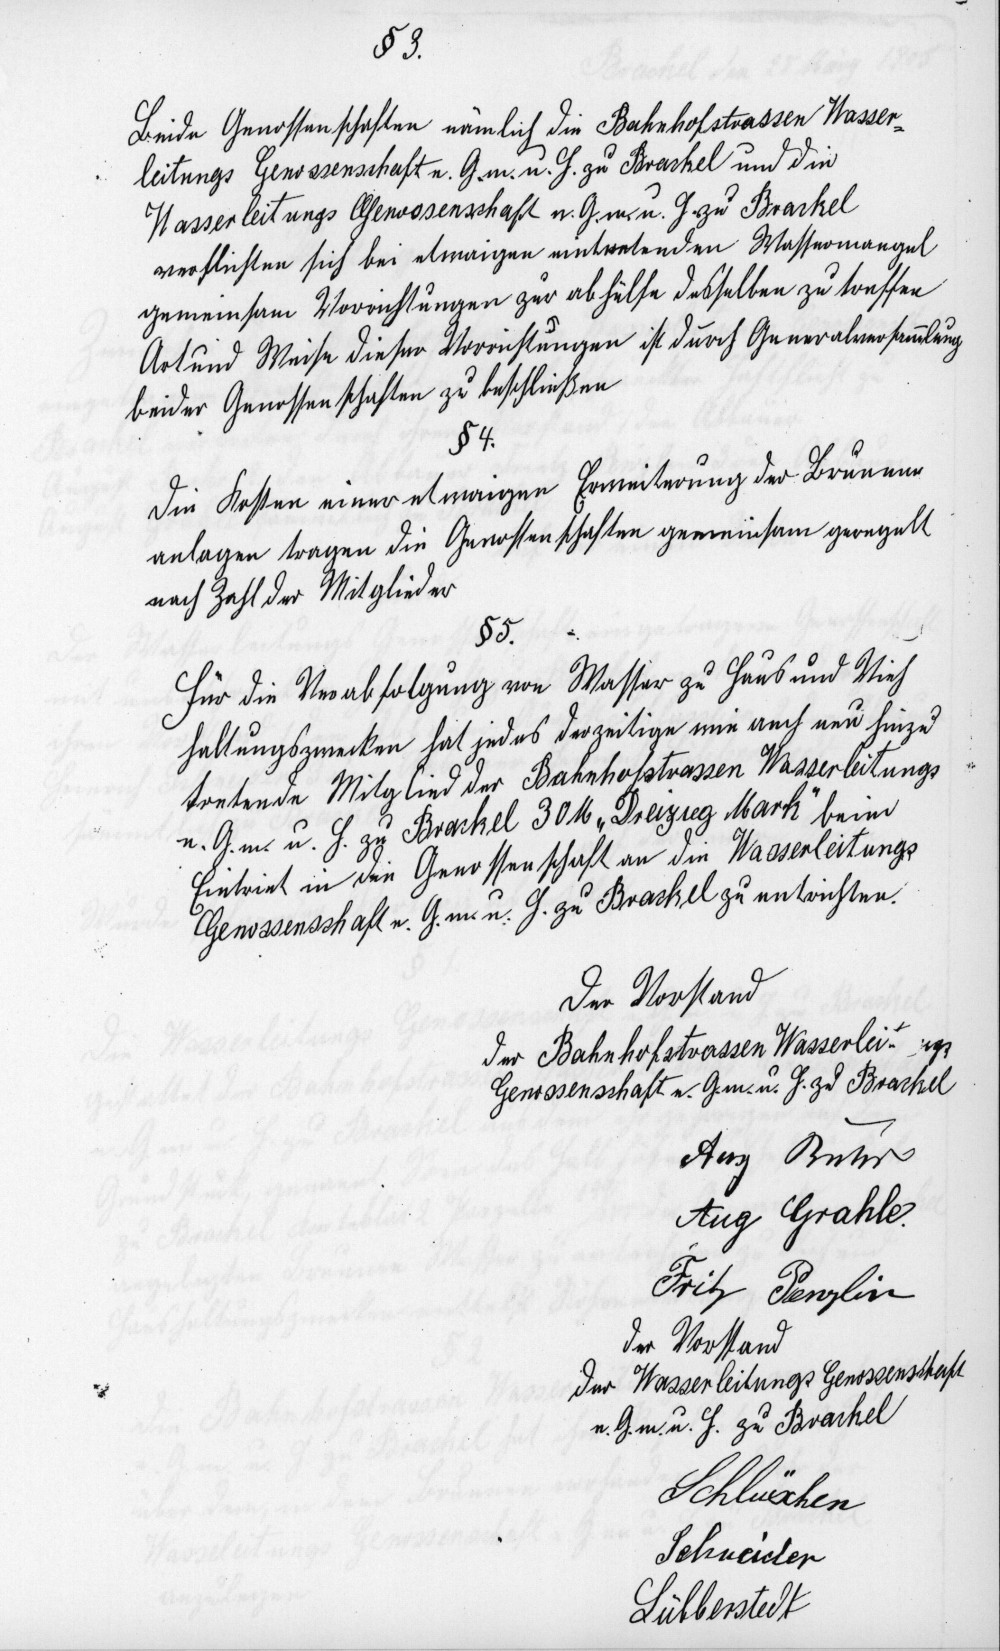 § 3.
Beide Genossenschaften nämlich die Bahnhofstrassen Wasser=
leitungs Genossenschaft e. G. m. u. H. zu Brackel und die
Wasserleitungs Genossenschaft e. G. m. u. H. zu Brackel
verflichten sich bei etwaigen eintretenden Wassermangel
gemeinsam Vorrichtungen zur abhülfe desselben zu treffen
Art und Weise dieser Vorrichtungen ist durch Generalversammlung
beider Genossenschaften zu beschließen
§ 4.
Die Kosten einer etwaigen Erweiterung der Brunnen
anlagen tragen die Genossenschaften gemeinsam geregelt
nach Zahl der Mitglieder
§ 5.
Für die Verabfolgung von Wasser zu Haus und Vieh
haltungszwecken hat jedes derzeitige wie auch neu hinzu
tretende Mitglied der Bahnhofstrassen Wasserleitungs
e. G. m. u. H. zu Brackel 30 M „Dreizieg Mark" beim
Eintriet in die Genossenschaft an die Wasserleitungs
Genossensschaft e. G. m. u. H. zu Brackel zu entrichten.
Der Vorstand
der Bahnhofstrassen Wasserleitungs
Genossenschaft e. G. m. u. H. zu Brackel
Aug
Aug Grahle.
Fritz Penzlin
der Vorstand
der Wasserleitungs Genossenschaft
e. G. m. u. H. zu Brackel
Schlüschen
Schneider
Lübberstedt